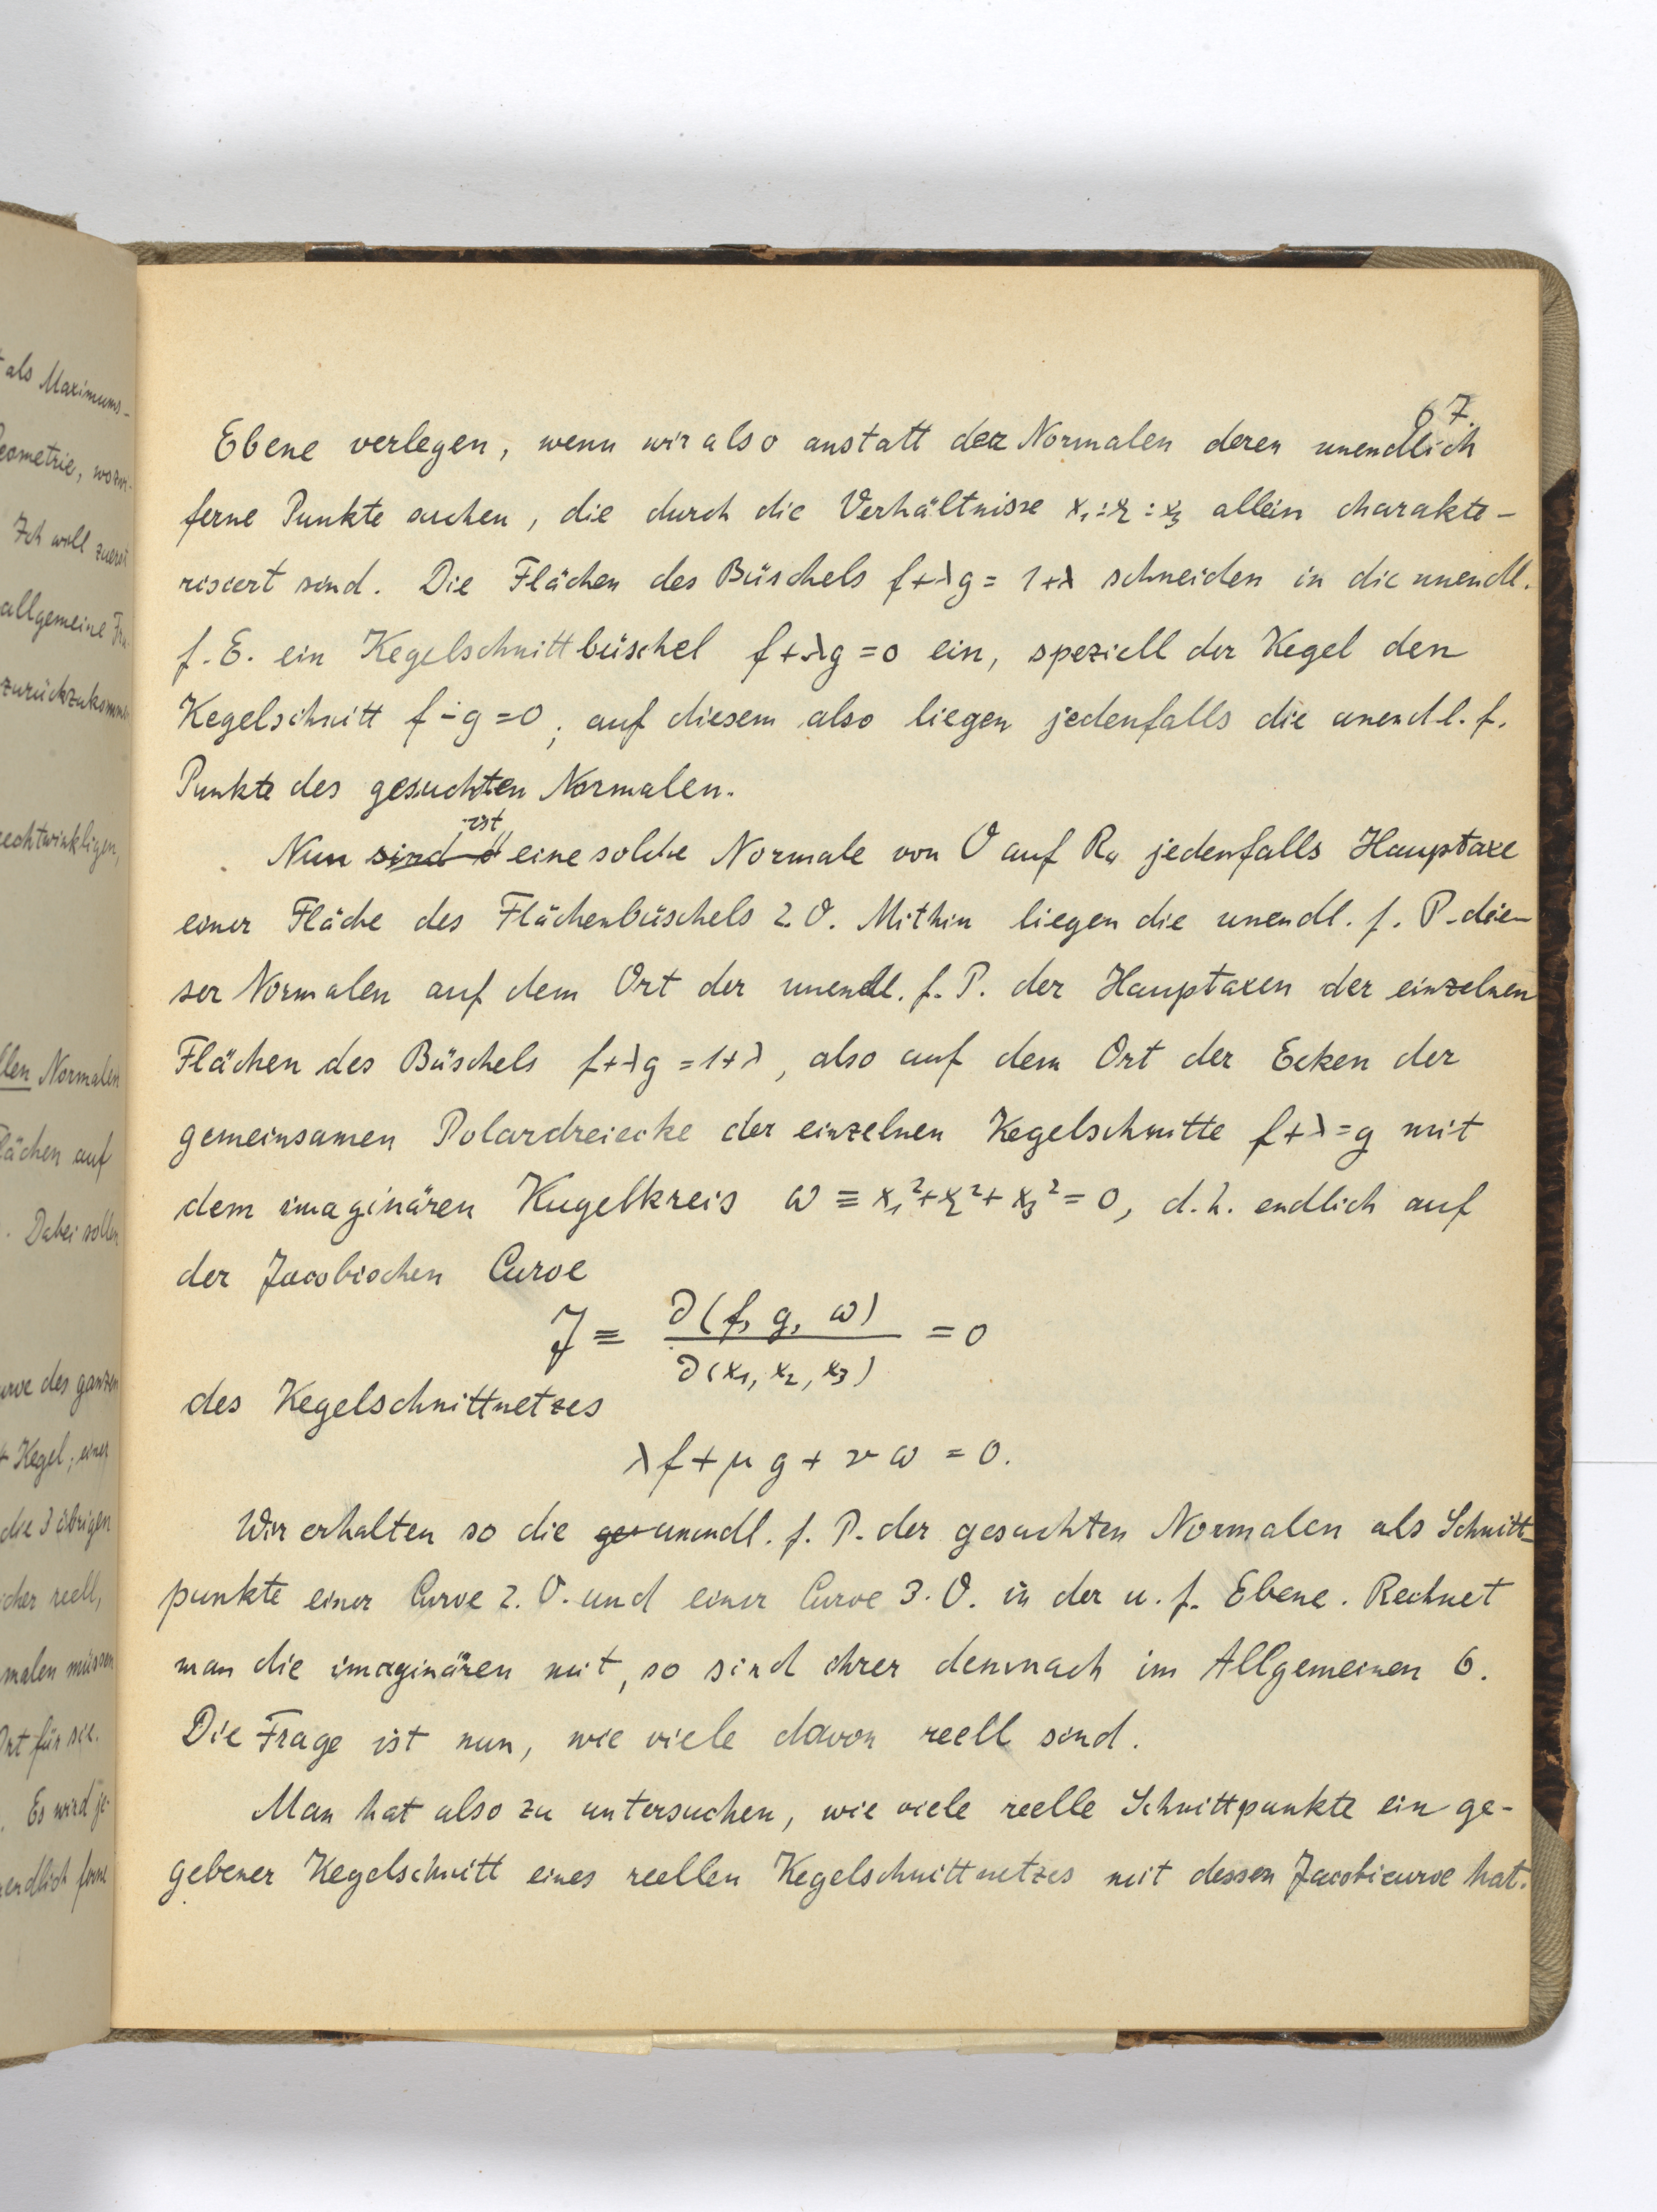 als Maximums-
wozu-
Ich will zuerst
allgemeine
zurückzukommen
rechtwinkligen,
Normalen
auf
Dabei sollen
des ganzen
Kegel, einer
die 3 übrigen
reell,
müssen
Ort für sie.
Es wird je-
67.
Ebene verlegen, wenn wir also anstatt der Normalen deren unendlich
ferne Punkte suchen, die durch die Verhältnisse x₁:x₂:x₃ allein charakte-
risiert sind. Die Flächen des Büschels f+λg = 1+λ schneiden in die unendl.
f. E. ein Kegelschnittbüschel f+λg = 0 ein, speziell der Kegel den
Kegelschnitt f-g=0; auf diesem also liegen jedenfalls die unendl. f.
Punkte des gesuchten Normalen.
Nun sind ist eine solche Normale von O auf R₄ jedenfalls Hauptaxe
einer Fläche des Flächenbüschels 2.O. Mithin liegen die unendl. f. P. die-
ser Normalen auf dem Ort der unendl. f. P. der Hauptaxen der einzelnen
Flächen des Büschels f+λg = 1+λ, also auf dem Ort der Ecken der
gemeinsamen Polardreiecke der einzelnen Kegelschnitte f+λ=g mit
dem imaginären Kugelkreis ω ≡ x₁²+x₂²+x₃² = 0, d.h. endlich auf
der Jacobischen Curve
J ≡ ∂(f, g, ω) / ∂(x₁, x₂, x₃) = 0
des Kegelschnittnetzes
λf + μg + νω = 0.
Wir erhalten so die ge unendl. f. P. der gesuchten Normalen als Schnitt-
punkte einer Curve 2. O. und einer Curve 3. O. in der u. f. Ebene. Rechnet
man die imaginären mit, so sind ihrer demnach im Allgemeinen 6.
Die Frage ist nun, wie viele davon reell sind.
Man hat also zu untersuchen, wie viele reelle Schnittpunkte ein ge-
gebener Kegelschnitt eines reellen Kegelschnittnetzes mit dessen Jacobicurve hat.